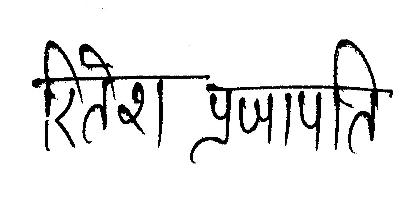 रितेश प्रजापति